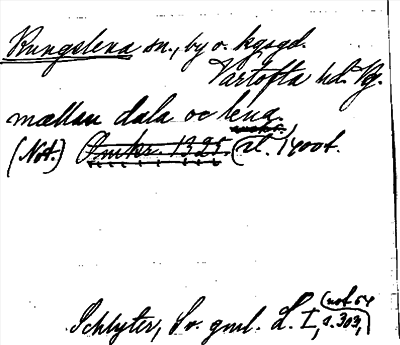 Kungslena sn., by o. kgsgd.
Vartofta hd. Vg.
mællan dala oc lena
(Not.) Omkr. 1325. (sl. 1400t.
Schlyter, Sv. gml. L. I, s. 303,
(not 64